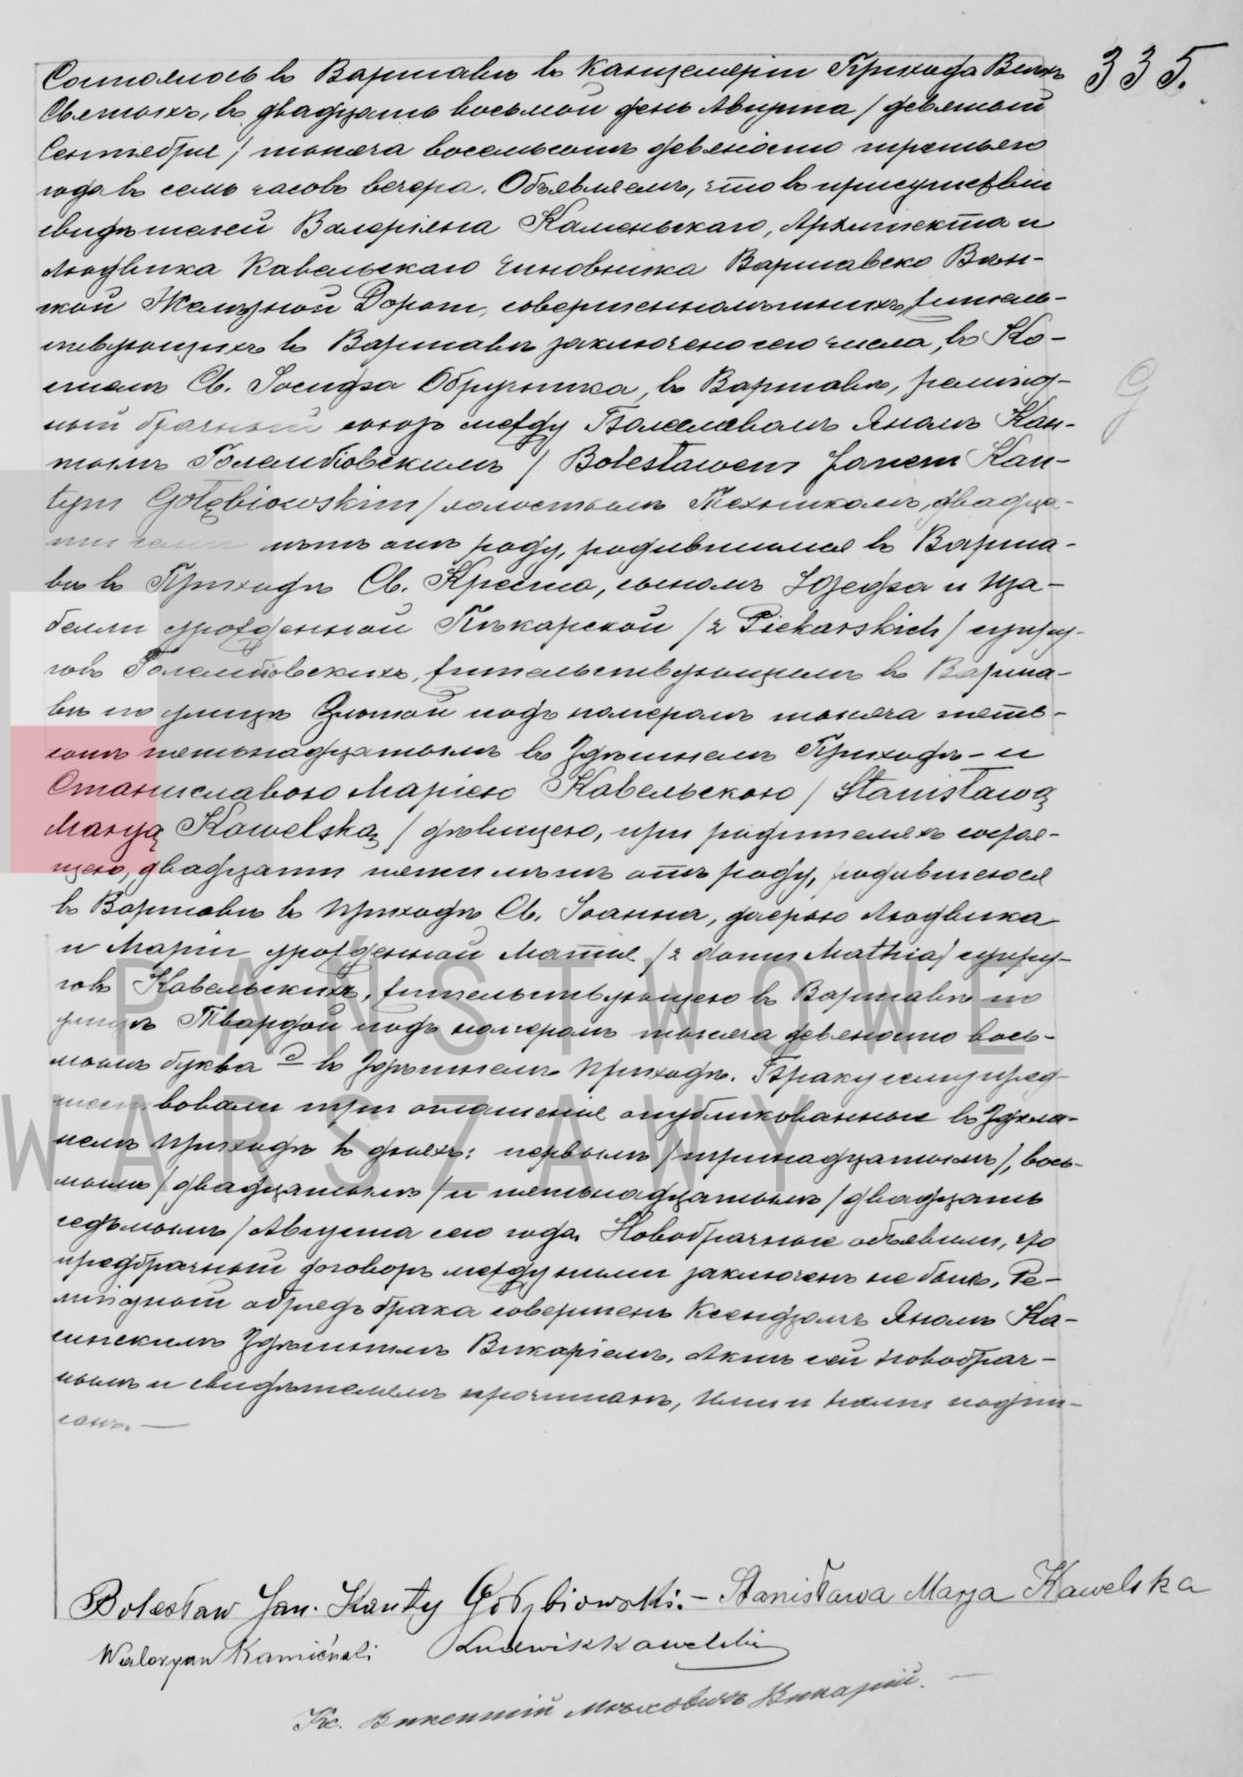 335.
Состоялось въ Варшавѣ въ Канцеляріи Прихода Всѣхъ
Святыхъ, въ двадцать восьмой день Августа / девятый
Сентября / тысяча восемьсотъ девяносто третьяго
года въ семь часовъ вечера. Объявляемъ, что въ присутствіи
свидѣтелей Валеріяна Каменьскаго, Архитекта и
Людвика Кавельскаго чиновника Варшавско Вѣн-
ской Желѣзной Дороги, совершеннолѣтнихъ, житель-
ствующихъ въ Варшавѣ заключено сего числа, въ Ко-
стелѣ Св. Іосифа Обручника, въ Варшавѣ, религіоз-
ный брачный союзъ между Болеславомъ Яномъ Кан-
тымъ Голембіовскимъ / Bolesławem Janem Kan-
tym Gołębiowskim / холостымъ Техникомъ, двадца-
ти семи лѣтъ отъ роду, родившимся въ Варша-
вѣ въ Приходѣ Св. Креста, сыномъ Юзефа и Иза-
белли урожденной Пѣкарской / z Piekarskich / супру-
говъ Голембіовскихъ, жительствующимъ въ Варша-
вѣ по улицѣ Злотой подъ номеромъ тысяча пять-
сотъ пятьнадцатымъ въ Здѣшнемъ Приходѣ – и
Станиславою Маріею Кавельскою / Stanisławą
Maryą Kawelską / дѣвицею, при родителяхъ состоя-
щею, двадцати пяти лѣтъ отъ роду, родившеюся
въ Варшавѣ въ Приходѣ Св. Іоанна, дочерью Людвика
и Маріи урожденной Матія / z domu Mathia / супру-
говъ Кавельскихъ, жительствующею въ Варшавѣ по
улицѣ Твардой подъ номеромъ тысяча девяносто вось-
мымъ буква въ Здѣшнемъ Приходѣ. Браку сему пред-
шествовали три оглашенія опубликованные въ Здѣш-
немъ Приходѣ въ дняхъ: первымъ / тринадцатымъ /, вось-
мымъ / двадцатымъ / и пятьнадцатымъ / двадцать
седьмымъ / Августа сего года. Новобрачные объявили, что
предбрачный договоръ между ними заключенъ не былъ. Ре-
лигіозный обрядъ брака совершенъ Ксендзомъ Яномъ Ка-
синскимъ Здѣшнимъ Викаріемъ. Актъ сей новобрач-
нымъ и свидѣтелямъ прочитанъ, Ими и Нами подпи-
санъ. —
Bolesław Jan. Kanty Gołębiowski. – Stanisława Marja Kawelska
Waleryan Kamiński Ludwik Kawelski
Кс. Викентій Викарій. —
PAŃSTWOWE
WARSZAWY